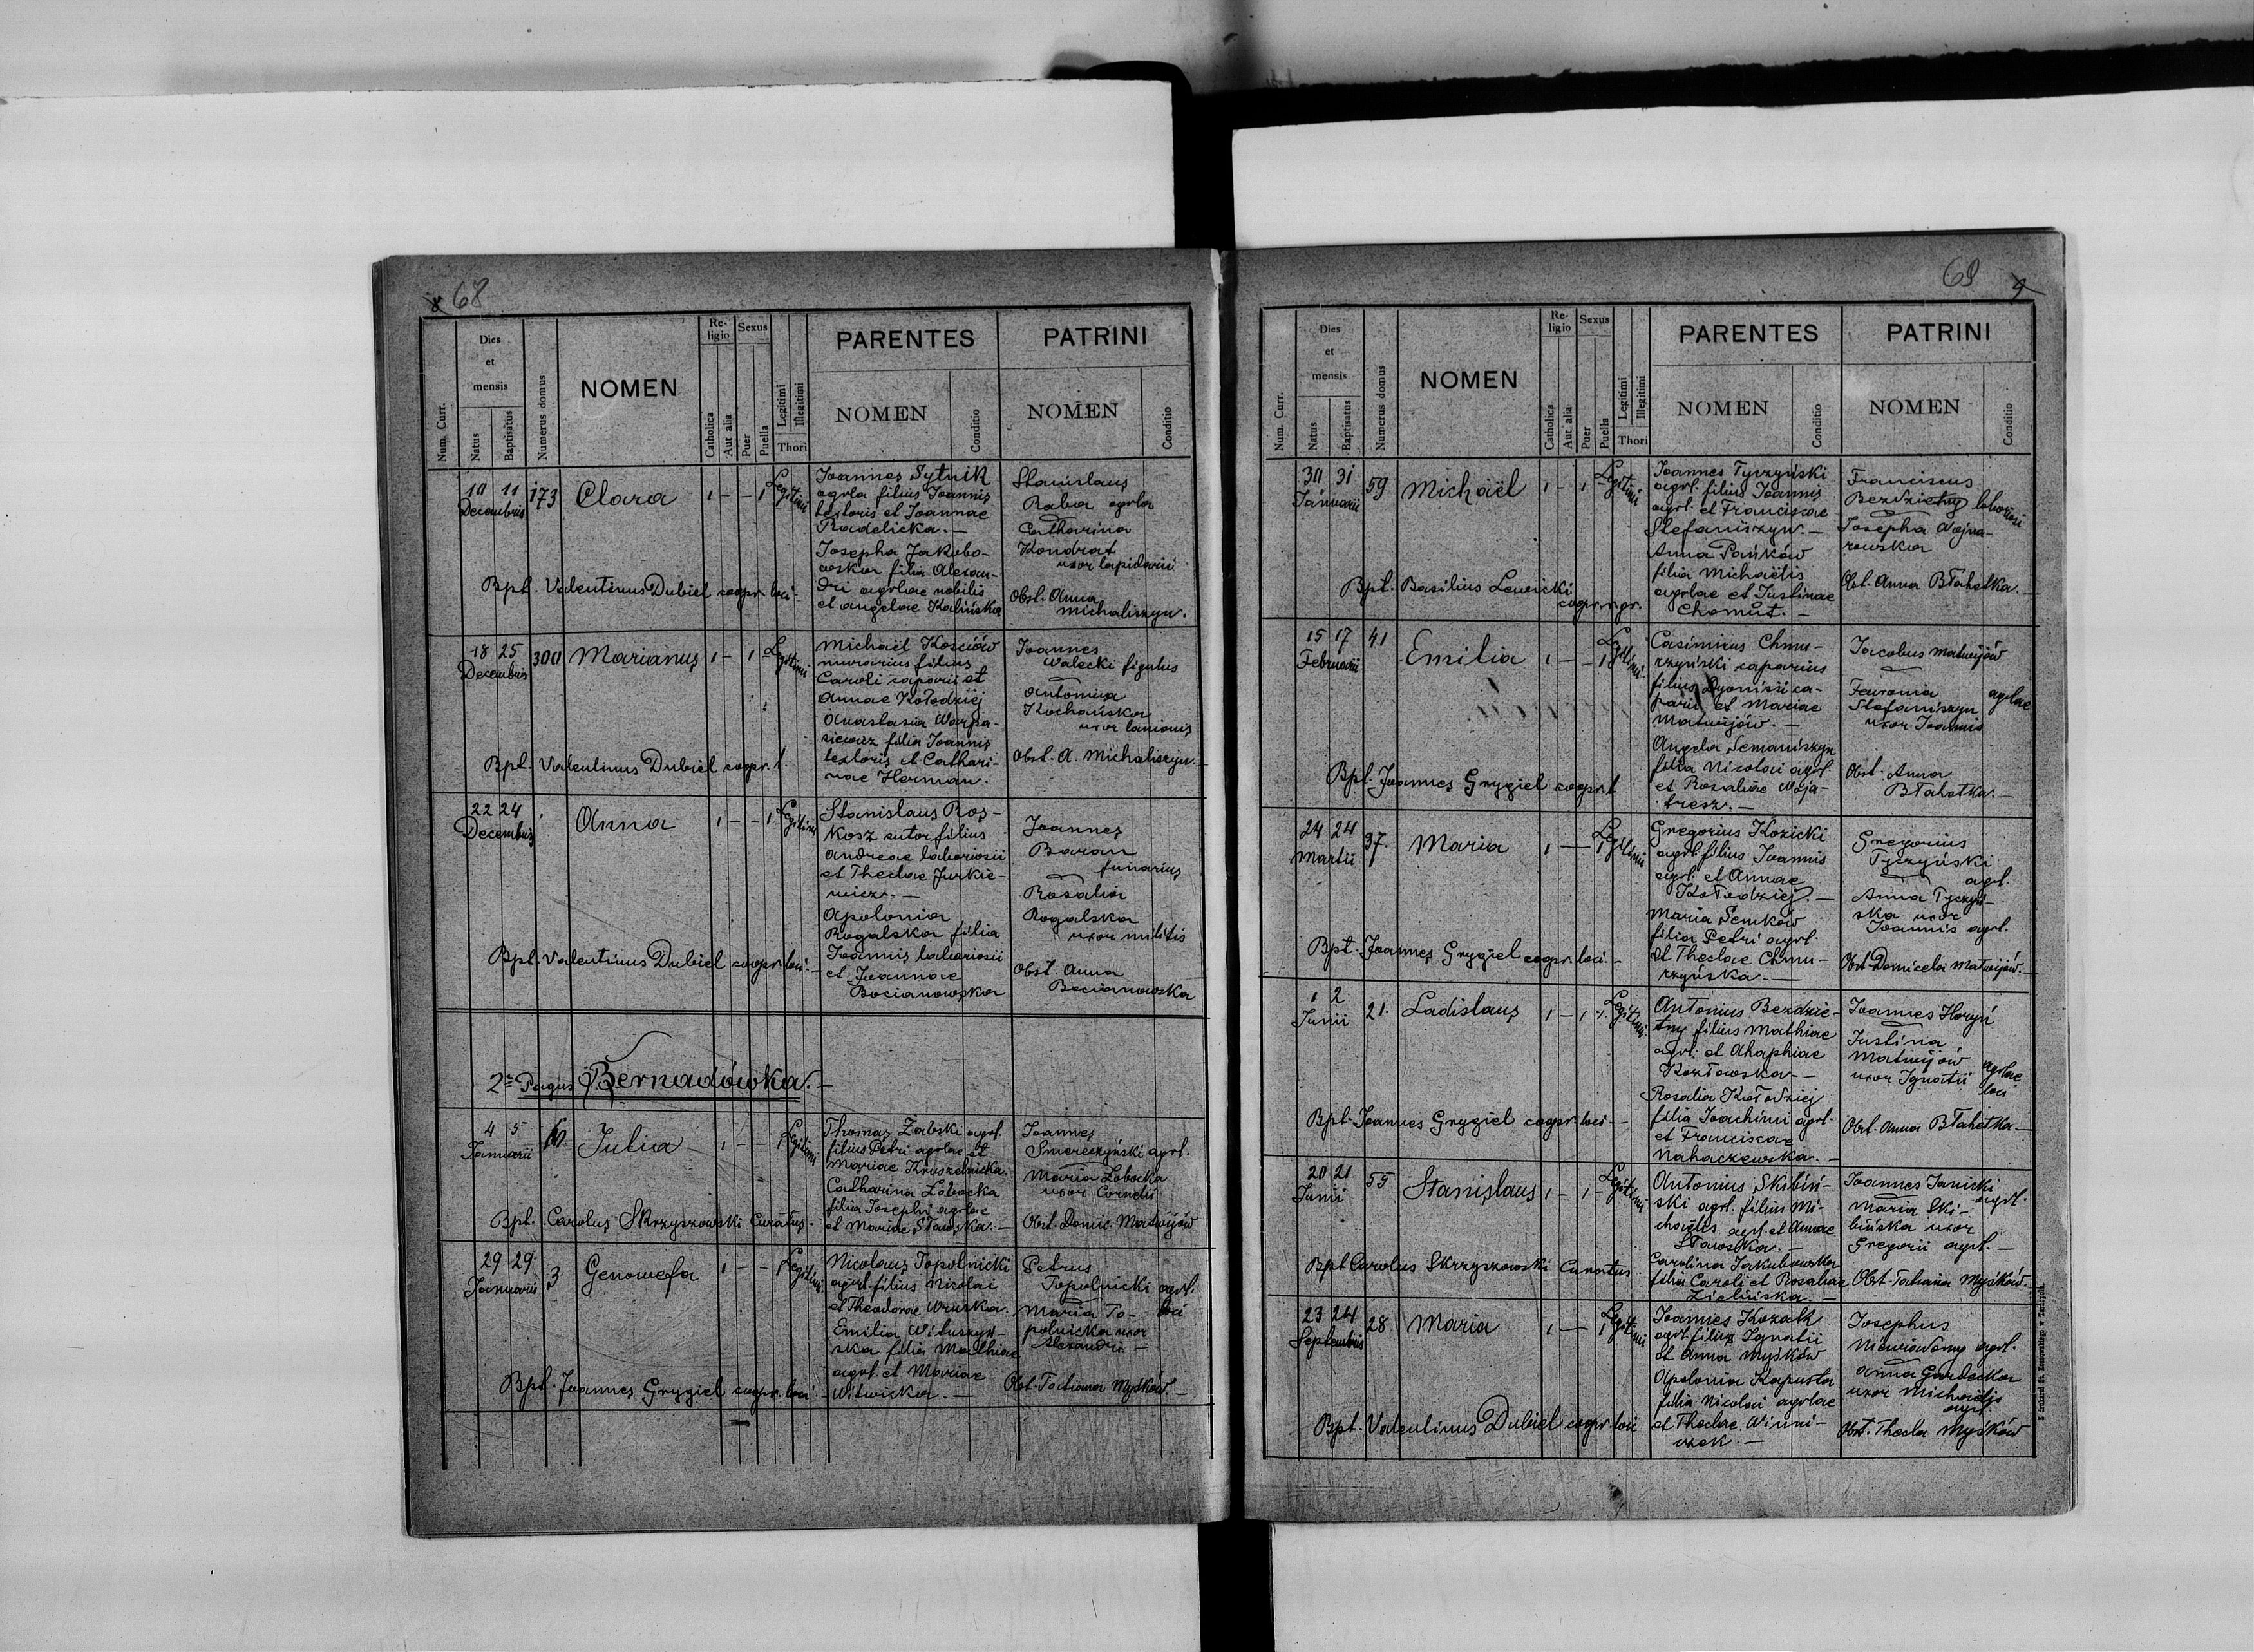 8 68
Dies et mensis
Num. Curr.
Natus
Baptisatus
Numerus domus
NOMEN
Religio
Catholica
Aut alia
Sexus
Puer
Puella
Legitimi
Illegitimi
Thori
PARENTES
NOMEN
Conditio
PATRINI
NOMEN
Conditio
10 11 173 Clara 1 - - 1 Legitimi
Decembris
Joannes Sytnik
agrla filius Joannis
textoris et Joannae
Radelicka. -
Josepha Jakubo-
wska filia Alexan-
dri agrlae nobilis
et Angelae Kalińska
Stanislaus
Raba agrla
Catharina
Kondrat
uxor lapidarii
Obst. Anna
Michaliszyn.
Bpt. Valentinus Dubiel coopr. loci -
18 25 300 Marianus 1 - 1 - Legitimi
Decembris
Michaël Kościów
murarius filius
Caroli caparii et
Annae Kołodziej
Anastasia Warpa-
siewicz filia Joannis
textoris et Cathari-
nae Herman. -
Joannes
Walecki figulus
Antonina
Kochańska
uxor lanionis
Obst. A. Michaliszyn. -
Bpt. Valentinus Dubiel coopr. l.
22 24 Anna 1 - - 1 Legitimi
Decembris
Stanislaus Ros-
kosz sutor filius
Andreae laboriosii
et Theclae Jurkie-
wicz. -
Apolonia
Rogalska filia
Joannis laboriosii
et Joannae
Bocianowska
Joannes
Baran
funarius
Rosalia
Rogalska
uxor militis
Obst. Anna
Bocianowska
Bpt. Valentinus Dubiel coopr. loci. -
2= Pagus Bernadówka. -
4 5 Julia 1 - - 1 Legitimi
Januarii
Thomas Żabski agrl.
filius Petri agrlae et
Mariae Kruszelnicka.
Catharina Łobocka
filia Josephi agrlae
et Mariae Sławska. -
Joannes
Smereczyński agrl.
Maria Łobocka
uxor Cornelii
Obst. Domic. Matwijów
Bpt. Carolus Skrzyszowski Curatus. -
29 29 3 Genowefa 1 - - 1 Legitimi
Januarii
Nicolaus Topolnicki
agrl. filius Nicolai
et Theodorae Wruska.
Emilia Wituszyń-
ska filia Mathiae
agrl. et Mariae
Witwicka. -
Petrus
Topolnicki agrl.
Maria To- loci
polnicka uxor
Alexandri -
Obst. Tatiana Myśków. -
Bpt. Joannes Grygiel coopr. loci -
69 9
Dies et mensis
Num. Curr.
Natus
Baptisatus
Numerus domus
NOMEN
Religio
Catholica
Aut alia
Sexus
Puer
Puella
Legitimi
Illegitimi
Thori
PARENTES
NOMEN
Conditio
PATRINI
NOMEN
Conditio
30 31 59 Michaël 1 - 1 - Legitimi
Januarii
Joannes Tyczyński
agrl. filius Joannis
agrl. et Franciscae
Stefaniszyn. -
Anna Pańków
filia Michaëlis
agrlae et Justinae
Chomut. -
Franciscus
Bezdzietny laboriosi
Josepha Wojna-
rowska
Obst. Anna Błahetka. -
Bpt. Basilius Lewicki
coopr. r. gr.
15 17 41 Emilia 1 - - 1 Legitimi
Februarii
Casimirus Chmu-
rzyński caparius
filius Dyonisii ca-
parii et Mariae
Matwijów. -
Angela Semaniszyn
filia Nicolai agrl.
et Rosaliae Woja-
tresz. -
Jacobus Matwijów
Fevronia agrlae
Stefaniszyn
uxor Joannis
Obst. Anna
Błahetka. -
Bpt. Joannes Grygiel coopr. l.
24 24 37. Maria 1 - - 1 Legitimi
Martii
Gregorius Kozicki
agrl. filius Joannis
agrl. et Annae
Kołodziej. -
Maria Semków
filia Petri agrl.
et Theclae Chmu-
rzyńska. -
Gregorius
Tyczyński
agrl.
Anna Tyczyń-
ska uxor
Joannis agrl.
Obst. Domicela Matwijów. -
Bpt. Joannes Grygiel coopr. loci. -
1 2 21. Ladislaus 1 - 1 - Legitimi
Junii
Antonius Bezdzie-
tny filius Mathiae
agrl. et Ahaphiae
Kozłowska. -
Rosalia Kołodziej
filia Joachimi agrl.
et Franciscae
Nahaczewska. -
Joannes Horyń
Justina
Matwijów agrlae
uxor Ignatii loci
Obst. Anna Błahetka -
Bpt. Joannes Grygiel coopr. loci -
20 21 55 Stanislaus 1 - 1 - Legitimi
Junii
Antonius Skibiń-
ski agrl. filius Mi-
chaëlis agrl. et Annae
Sławska. -
Carolina Jakubowska
filia Caroli et Rosaliae
Zielińska. -
Joannes Janicki
agrl.
Maria Ski-
bińska uxor
Gregorii agrl. -
Obst. Tatiana Myśków. -
Bpt. Carolus Skrzyszowski Curatus -
23 24 28 Maria 1 - - 1 Legitimi
Septembris
Joannes Kozak
agrl. filius Ignatii
et Anna Myśków
Apolonia Kapusta
filia Nicolai agrlae
et Theclae Winni-
czek. -
Josephus
Niewiadomy agrl.
Anna Gardecka
uxor Michaëlis
agrl.
Obst. Thecla Myśków
Bpt. Valentinus Dubiel coopr. loci